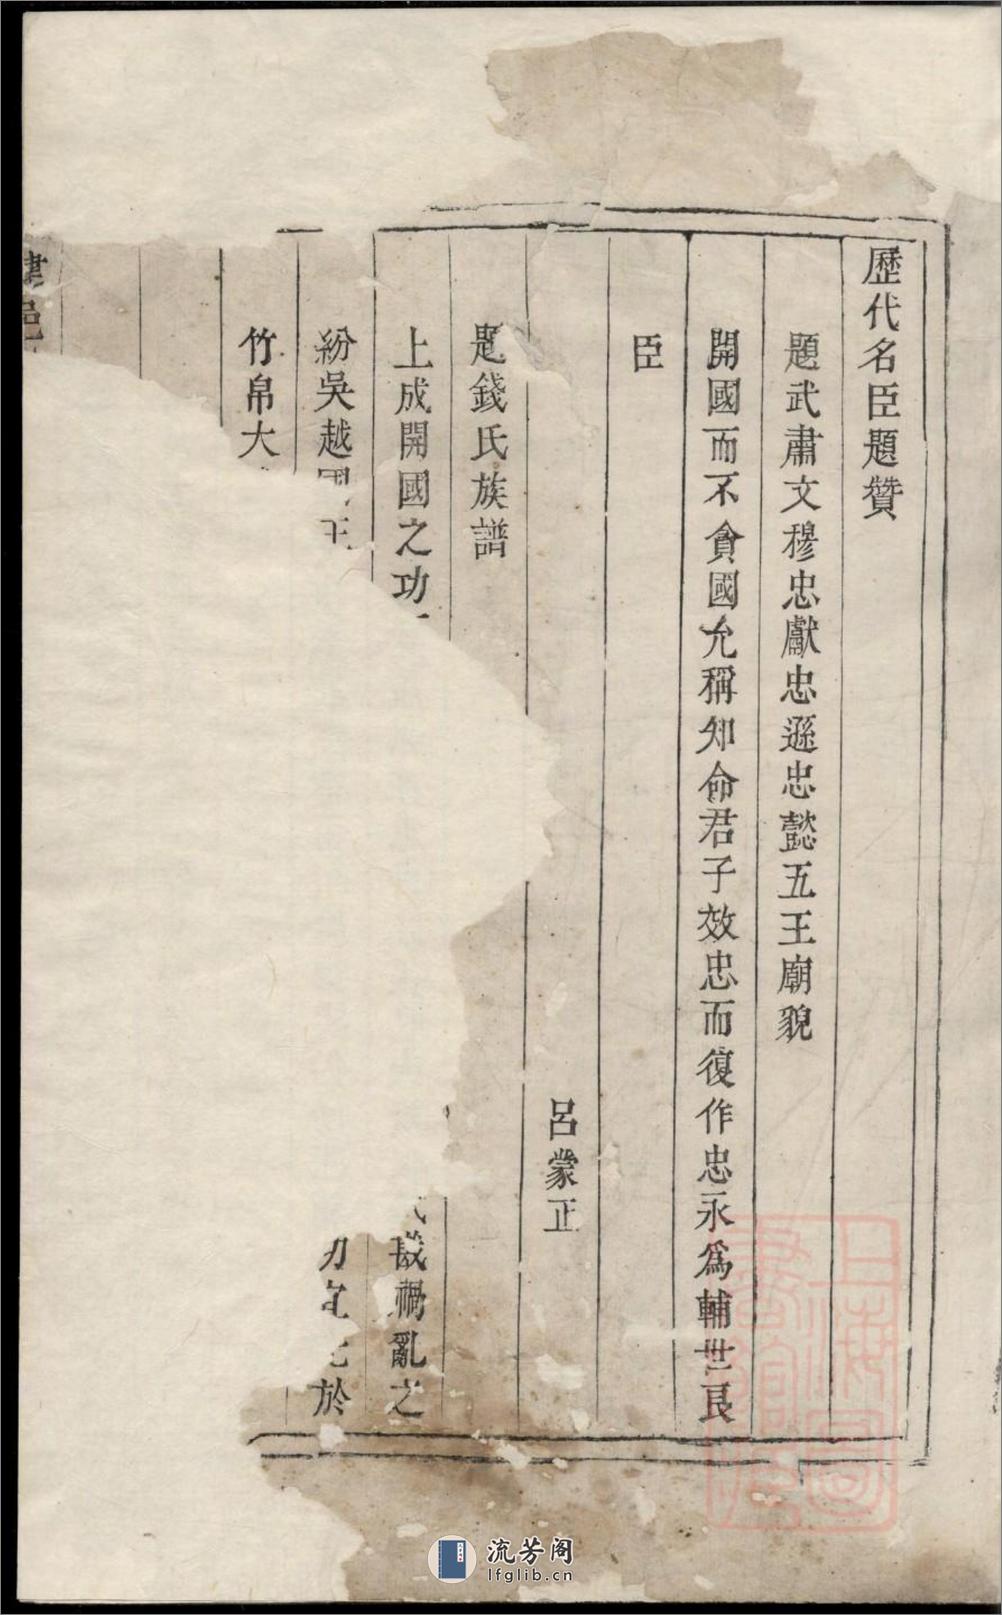 歷代名臣題贊
題武肅文穆忠獻忠遜忠懿五王廟貌
開國而不貪國允稱知命君子效忠而復作忠永爲輔世良
臣
呂蒙正
題錢氏族譜
上成開國之功 戡禍亂之
紛吳越國王 於
竹帛大
上海圖書館藏
流芳阁
lfglib.cn